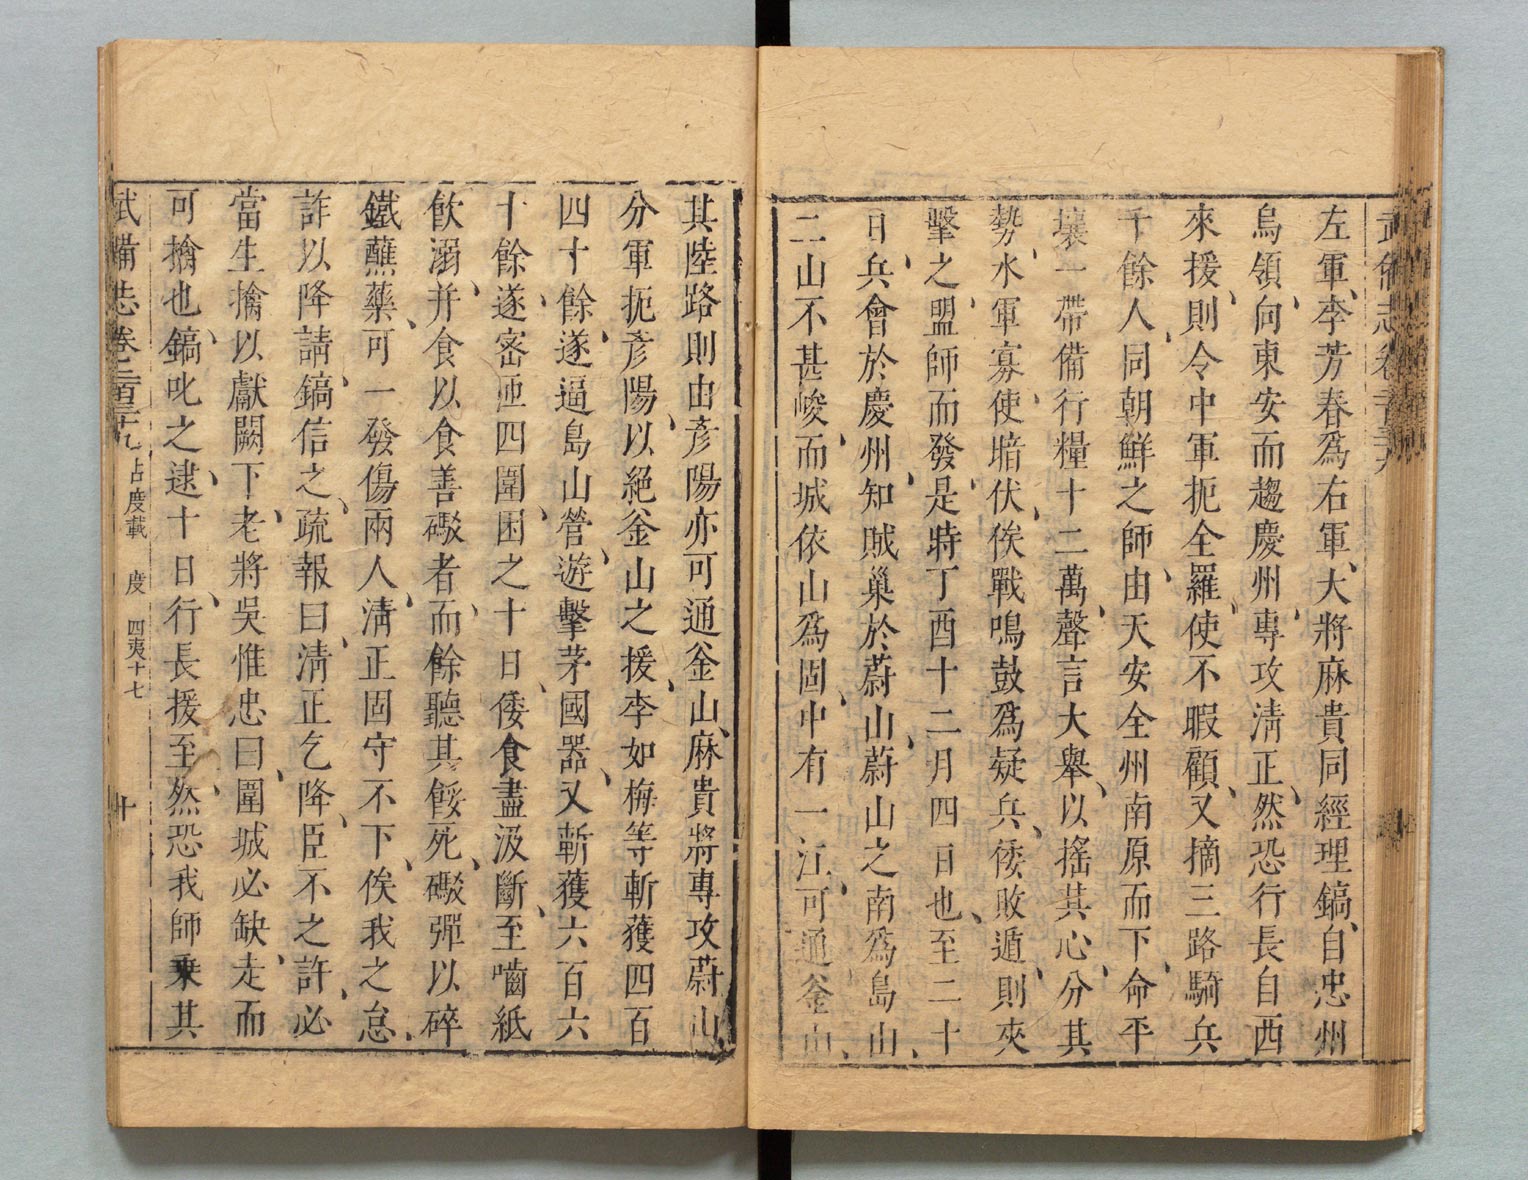 武備志卷二百三十九
左軍、李芳春爲右軍、大將麻貴同經理鎬、自忠州
鳥領、向東安而趨慶州、專攻清正、然恐行長自西
來援、則令中軍扼全羅、使不暇顧、又摘三路騎兵
千餘人、同朝鮮之師、由天安全州南原而下、命平
壤一帶備行糧十二萬、聲言大舉、以搖其心、分其
勢、水軍寡使暗伏、俟戰鳴鼓爲疑兵、倭敗遁、則夾
擊之、盟師而發、是時丁酉十二月四日也、至二十
日、兵會於慶州、知賊巢於蔚山、蔚山之南爲島山、
二山不甚峻、而城依山爲固、中有一江、可通釜山、
其陸路則由彥陽亦可通釜山、麻貴將專攻蔚山、
分軍扼彥陽、以絕釜山之援、李如梅等斬獲四百
四十餘、遂逼島山營、遊擊茅國器、又斬獲六百六
十餘、遂密匝四圍、困之十日、倭食盡汲斷、至嚙紙
飲溺、并食以食善礮者、而餘聽其餒死、礮彈以碎
鐵蘸藥、可一發傷兩人、清正固守不下、俟我之怠、
詐以降請、鎬信之、疏報曰、清正乞降、臣不之許、必
當生擒以獻闕下、老將吳惟忠曰、圍城必缺、走而
可擒也、鎬叱之、逮十日、行長援至、然恐我師乘其
武備志卷二百三十九 占度載 度 四夷十七 十